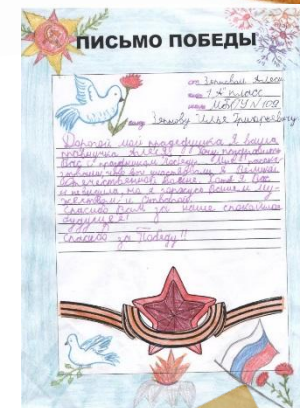 ПИСЬМО ПОБЕДЫ
от Алеси
1 "А" класс
школа МБОУ №109
кому Илье Григорьевичу
Дорогой мой прадедушка, я ваша
правнучка Алеся. Я хочу поздравить
Вас с праздником Победы.
что Вы участвовали в Великой
Отечественной войне. Хоть я Вас
и не видела, но я горжусь Вашем му-
жеством и
Спасибо Вам за наше спокойное
будущее!
Спасибо за Победу!!